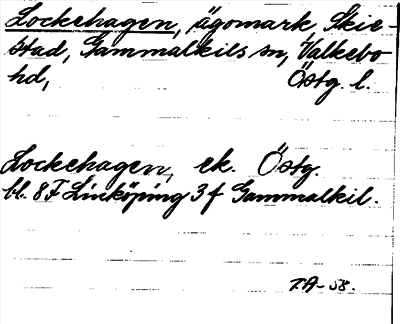 Lockehagen, ägomark Skie-
stad, Gammalkils sn, Valkebo
hd, Östg. l.
Lockehagen, ek. Östg.
bl. 8F Linköping 3f Gammalkil.
T.A-58.